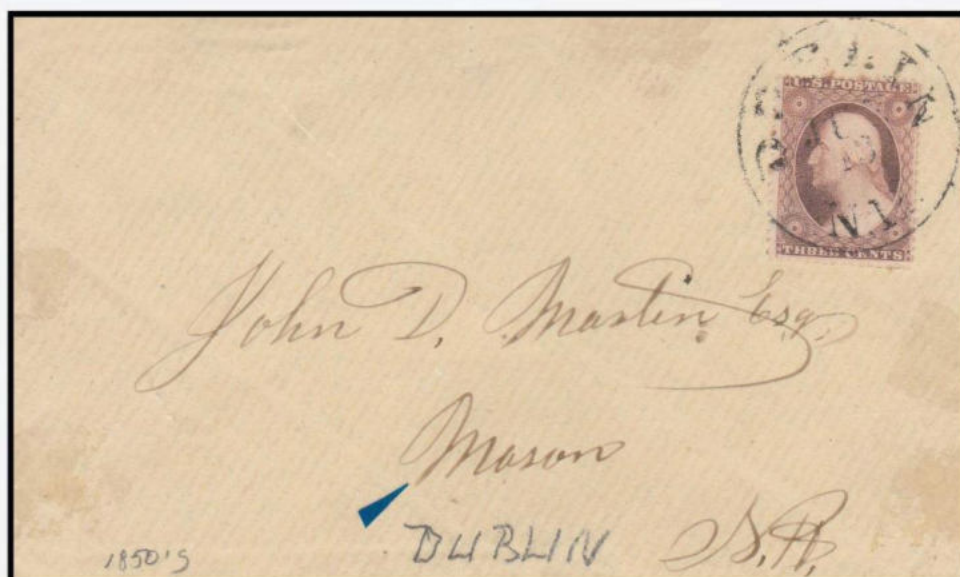 DUBLIN
U.S. POSTAGE
THREE CENTS
John D. Martin Esq.
Mason
DUBLIN N.H.
1850's